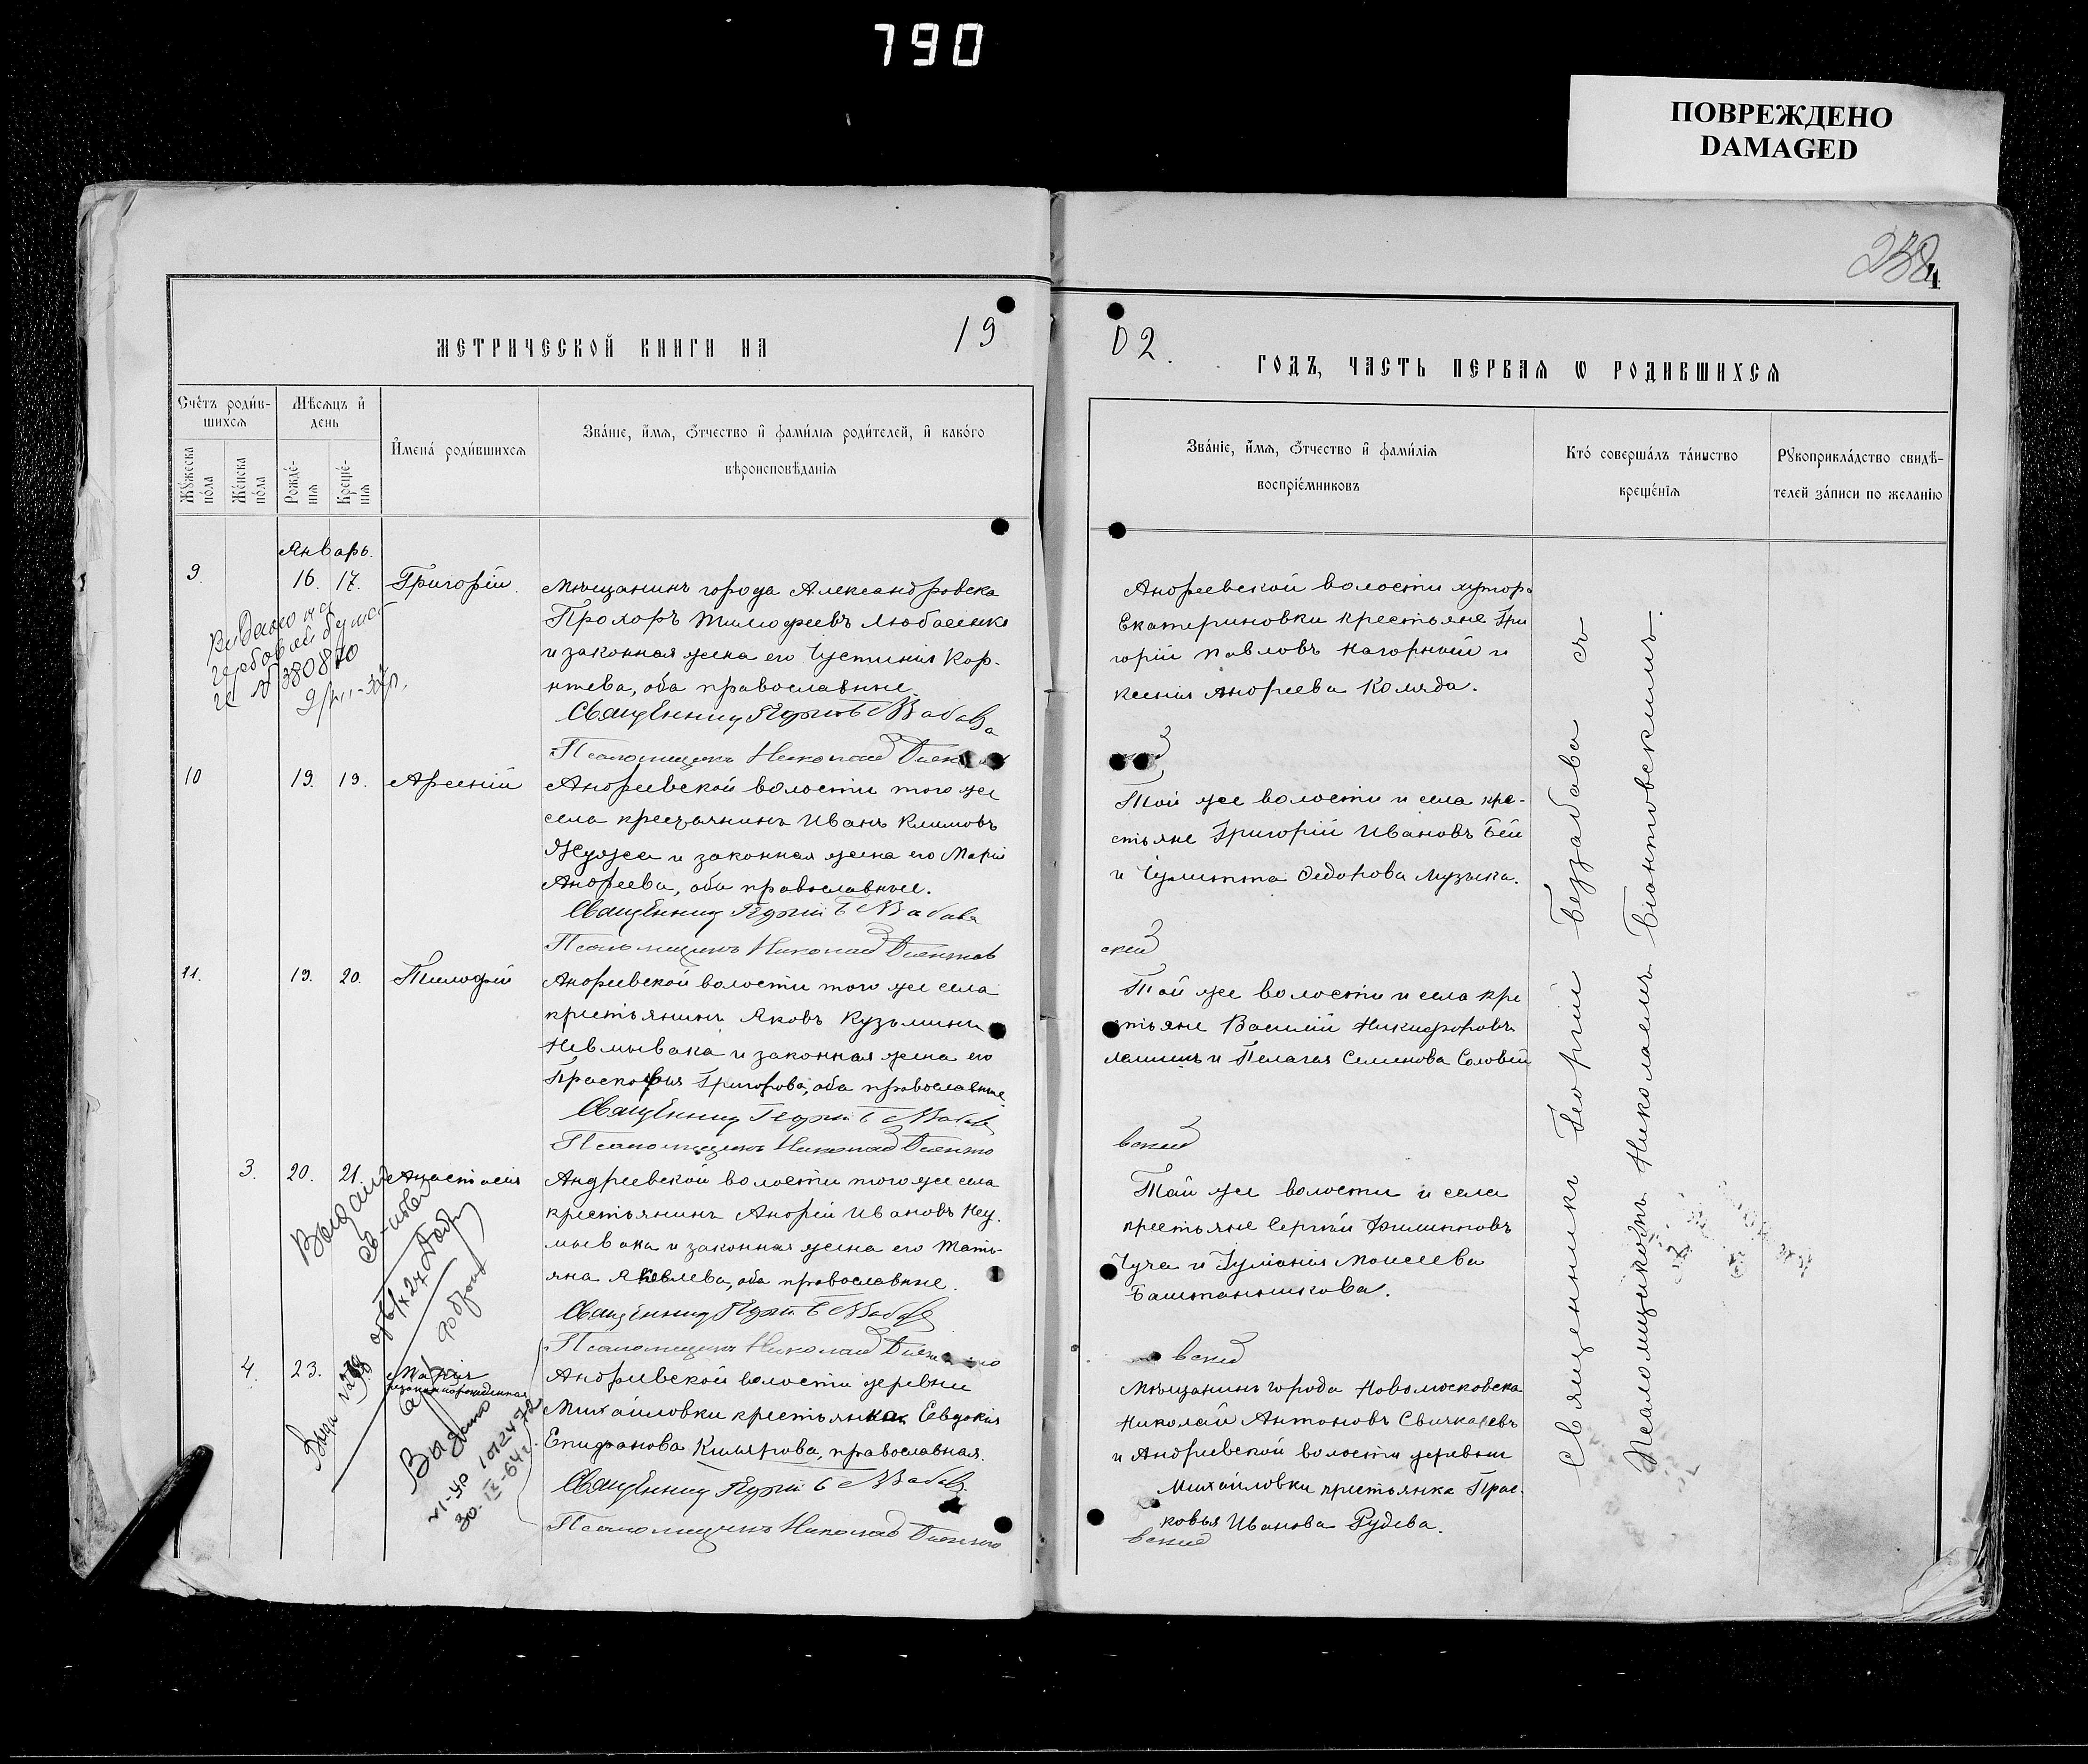 790
ПОВРЕЖДЕНО
DAMAGED
4
МЕТРИЧЕСКОЙ КНИГИ НА 19
02. ГОДЪ, ЧАСТЬ ПЕРВАЯ Ѡ РОДИВШИХСЯ
Счётъ роди́в-
шихсѧ
Мѣсѧцъ и҆
день
И҆мена́ роди́вшихсѧ
Зва́нїе, и҆́мѧ, ѻ҆́тчество и҆ фами́лїѧ роди́телей, и҆ како́гѡ
вѣроисповѣ́данїѧ
Мꙋ́жеска
по́ла
Же́нска
по́ла
Рожде́-
нїѧ
Креще́-
нїѧ
Зва́нїе, и҆́мѧ, ѻ҆́тчество и҆ фами́лїѧ
воспрїе́мниковъ
Кто́ соверша́лъ та́инство
креще́нїѧ
Рꙋкоприкла́дство свидѣ́-
телей за́писи по жела́нїю
Январь.
9. 16. 17. Григорій.
Мѣщанинъ города Александровска
Прохоръ Тимофеевъ Любаенко
и законная жена его Іустинія Кор-
нѣева, оба православные.
Священник Георгій Беззабава
Псаломщикъ Николай Бiянтов
Андреевской волости хутора
Екатериновки крестьяне Гри
горій Павловъ Нагорный и
Ксенія Андреева Коляда.
380870
10 19. 19. Арсеній
Андреевской волости того же
села крестьянинъ Иванъ Климовъ
Жужа и законная жена его Марія
Андреева, оба православные.
Священник Георгій Беззабава
Псаломщикъ Николай Бiянтов
Той же волости и села кре-
стьяне Григорій Ивановъ Бѣй
и Іулитта Федорова Музыка.
ский
11. 19. 20. Тимофей
Андреевской волости того же села
крестьянинъ Яковъ Кузьминъ
Невмывака и законная жена его
Праскофия Григорова, оба православные.
Священник Георгій Беззабава
Псаломщикъ Николай Бiянто
Той же волости и села кре
стьяне Василій Никифоровъ
и Пелагея Семенова Соловей
вский
3. 20. 21. Анастасія
Андреевской волости того же села
крестьянинъ Андрей Ивановъ Неу-
мывака и законная жена его Тать-
яна Яковлева, оба православные.
Священник Георгій Беззабава
Псаломщикъ Николай Бiянто
Той же волости и села
крестьяне Сергѣй Филипповъ
Чуча и Іуліанія Моисеева
Баштанникова.
вский
4. 23. Марія
незаконнорожденная
Андреевской волости деревни
Михайловки крестьянка Евдокія
Епифанова Кишярова, православная.
Священник Георгій Беззабава
Псаломщикъ Николай Бiянто
Мѣщанинъ города Новомосковска
Николай Антоновъ Свичкаревъ
и Андреевской волости деревни
Михайловки крестьянка Прас-
ковья Иванова Рудева.
вский
Выдано
VI-УР 1012472
30.IX-64г.
Священникъ Георгій Беззабава съ
Псаломщикомъ Николаемъ Біантовскимъ.